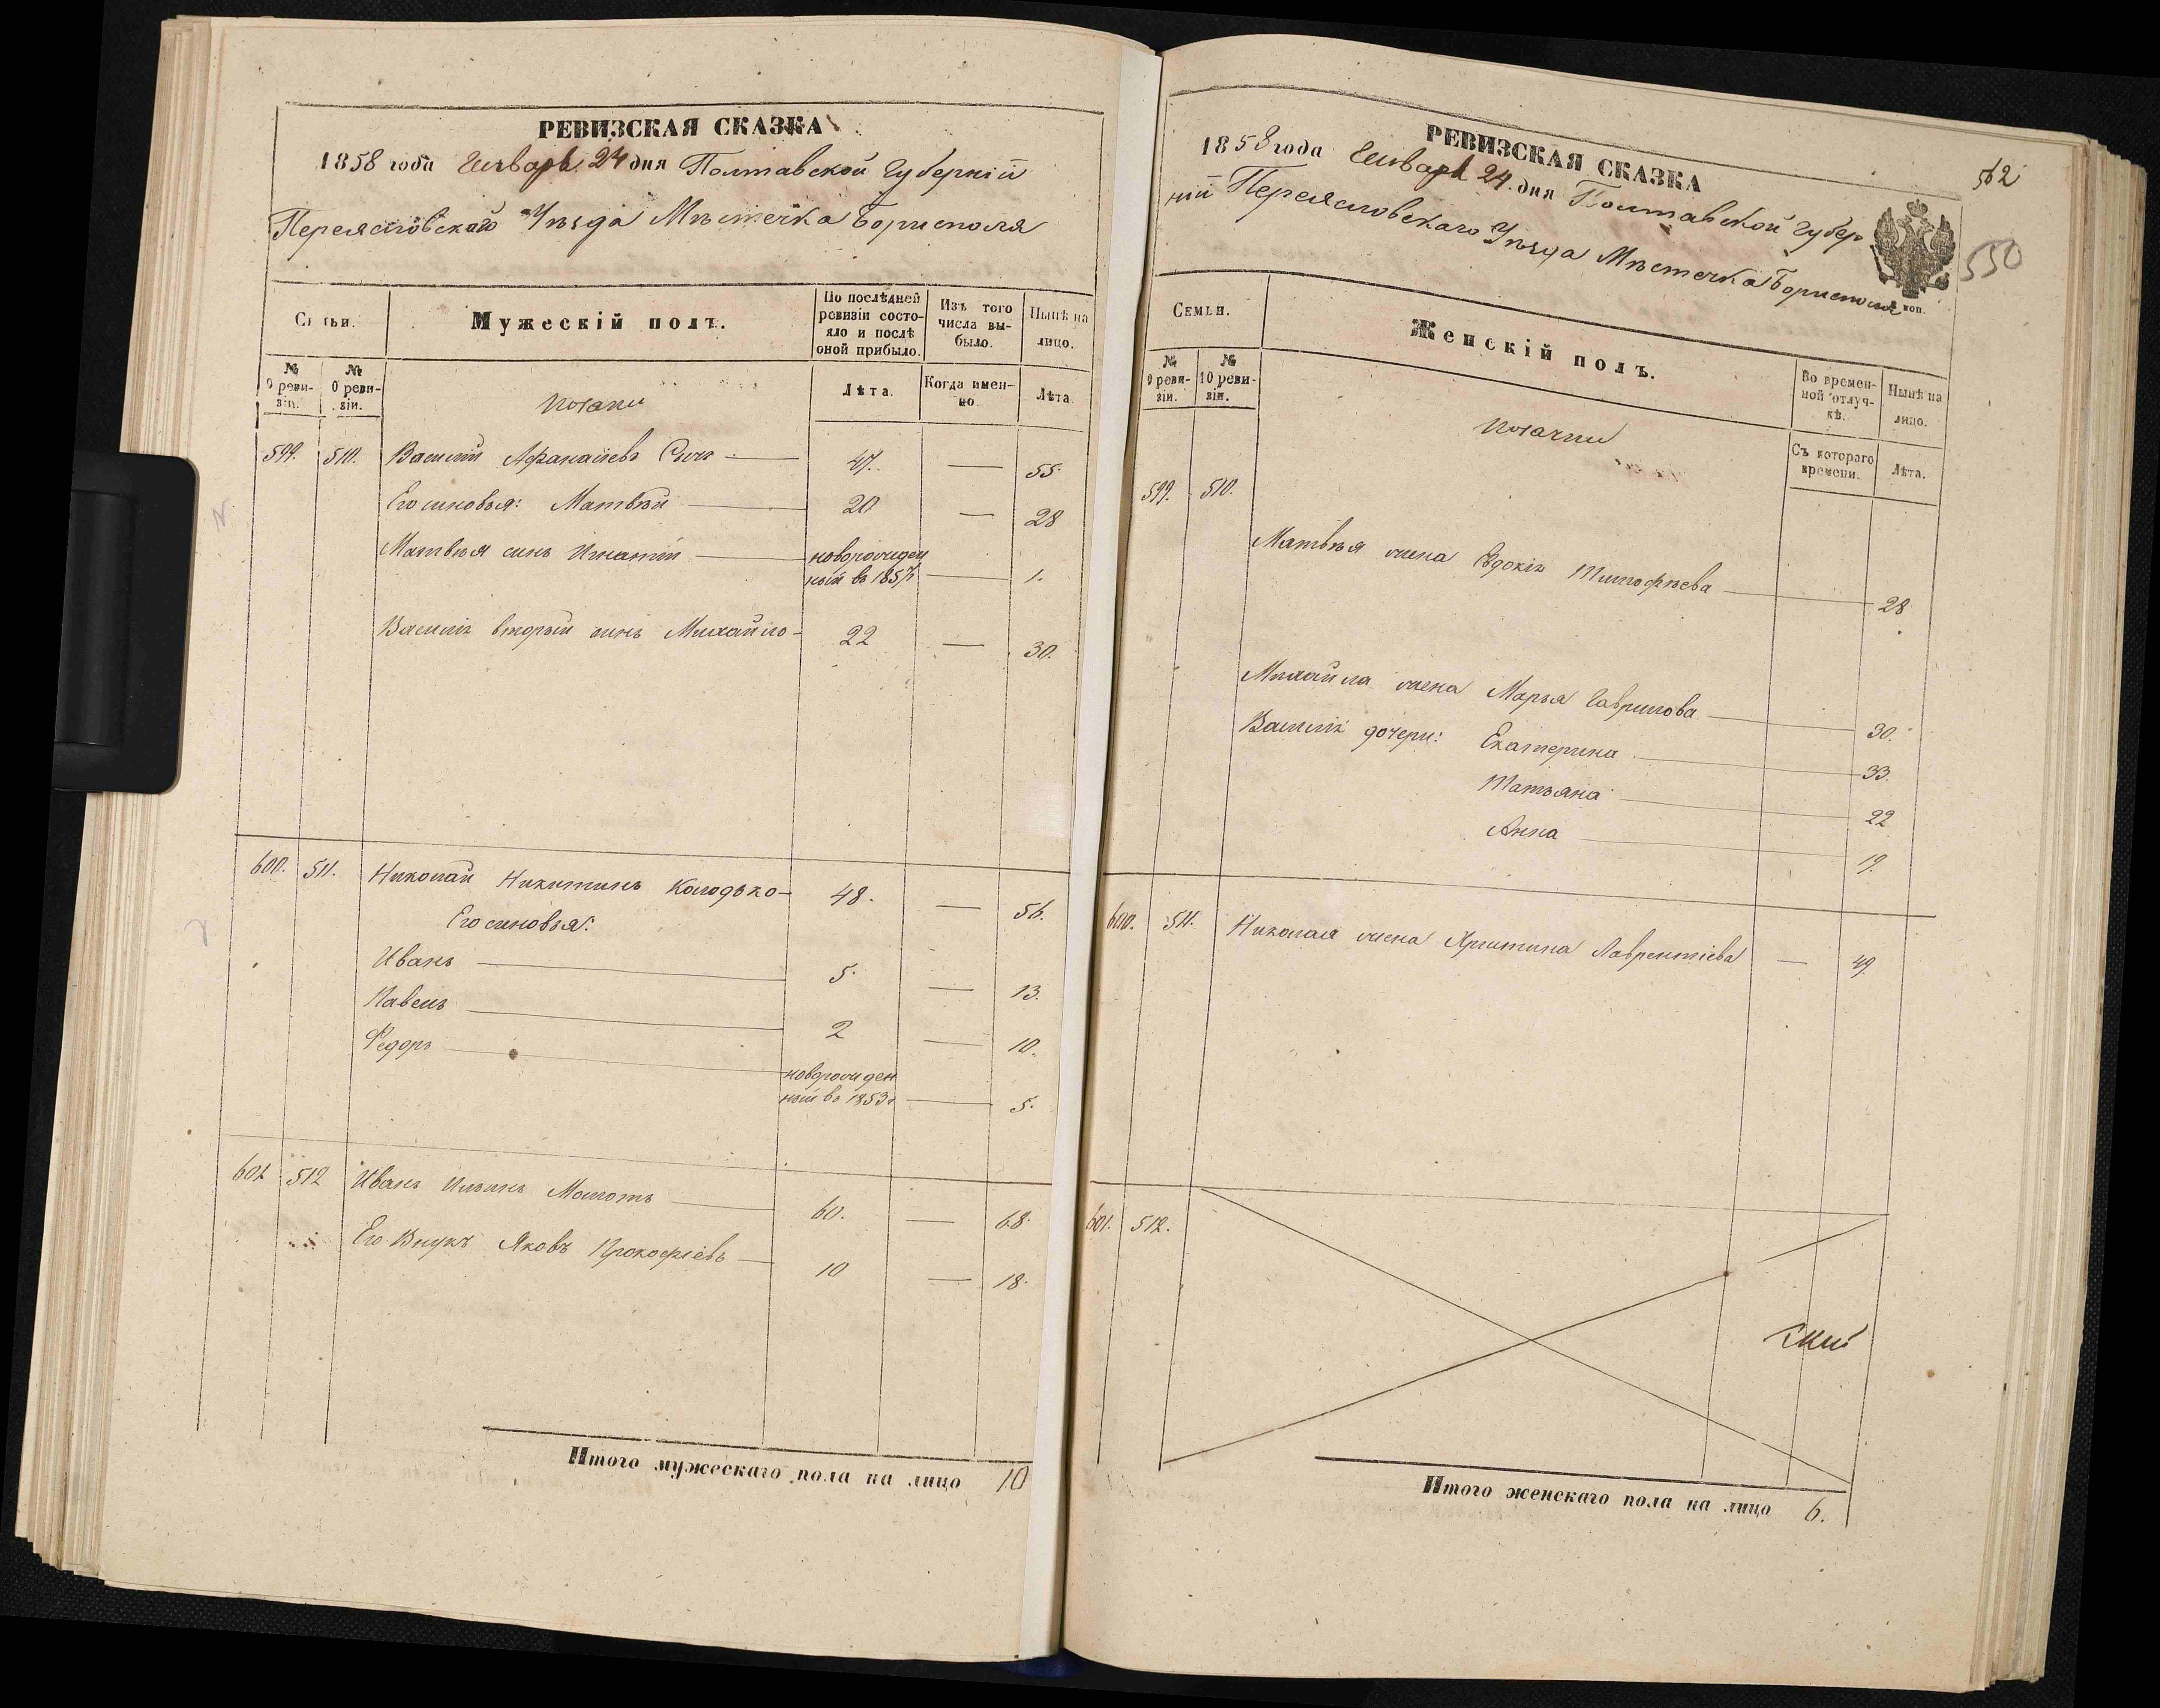 РЕВИЗСКАЯ СКАЗКА
1858 года Генваря 24 дня Полтавской Губерніи
Переясловскаго Уѣзда Мѣстечка Борисполя
Семьи.
Мужескій полъ.
По послѣдней ревизіи состояло и послѣ оной прибыло.
Изъ того числа выбыло.
Нынѣ на лицо.
№ 9 ревизіи.
№ 10 ревизіи.
Козаки
Лѣта.
Когда именно.
Лѣта.
599. 510. Василій Афанасіевъ Сычъ 47. — 55.
Его сыновья: Матвѣй 20 — 28
Матвѣя сынъ Игнатій новорожден
ный въ 1857г — 1.
Василія вторый сынъ Михайло 22 — 30.
600. 511. Николай Никитинъ Колодько 48. — 56.
Его сыновья:
Иванъ 5. — 13.
Павелъ 2 — 10.
Федоръ новорожден
ный въ 1853г — 5.
601 512 Иванъ Ильинъ 60. — 68.
Его Внукъ Яковъ Прокофіевъ 10 — 18.
Итого мужескаго пола на лицо 10
РЕВИЗСКАЯ СКАЗКА
562
1858 года Генваря 24 дня Полтавской Губер
ніи Переясловскаго Уѣзда Мѣстечка Борисполя
коп.
550
Семьи.
Женскій полъ.
Во временной отлучкѣ.
Нынѣ на лицо.
№ 9 ревизіи.
№ 10 ревизіи.
Козачки
Съ котораго времени.
Лѣта.
599. 510.
Матвѣя жена Евдокія Тимофѣева 28
Михайла жена Марья Гаврилова 30.
Василія дочери: Екатерина 33.
Татьяна 22
Анна 19.
600. 511. Николая жена Христина Лаврентіева — 49
601. 512.
скій
Итого женскаго пола на лицо 6.